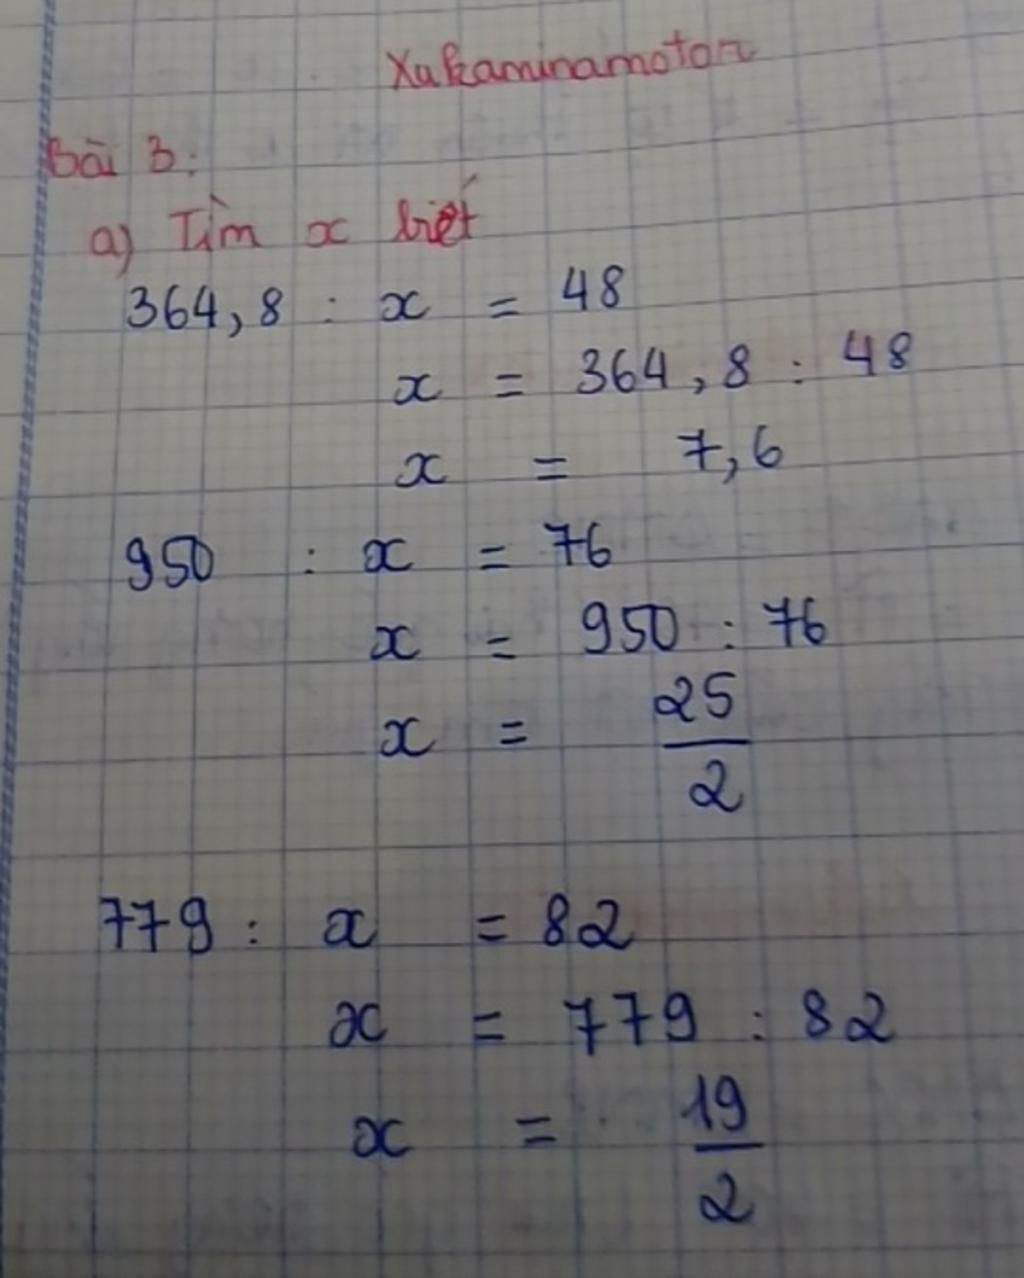 Xukaminamoton
Bài 3:
a) Tìm x biết
364,8 : x = 48
x = 364,8 : 48
x = 7,6
950 : x = 76
x = 950 : 76
x = 25/2
779 : x = 82
x = 779 : 82
x = 19/2